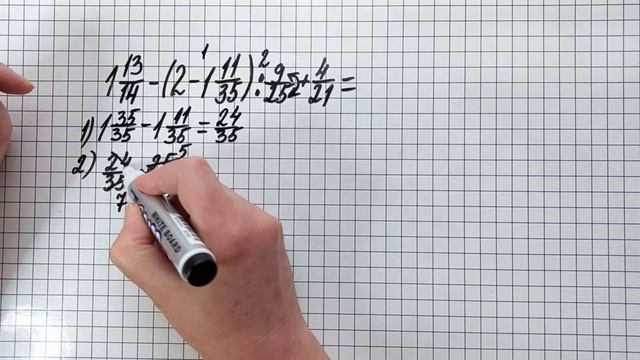 1 2
1 13/14 - (2 - 1 11/35) : 9/25 + 4/21 =
1) 1 35/35 - 1 11/35 = 24/35
2) 24/35 25 5
7
WHITE BOARD